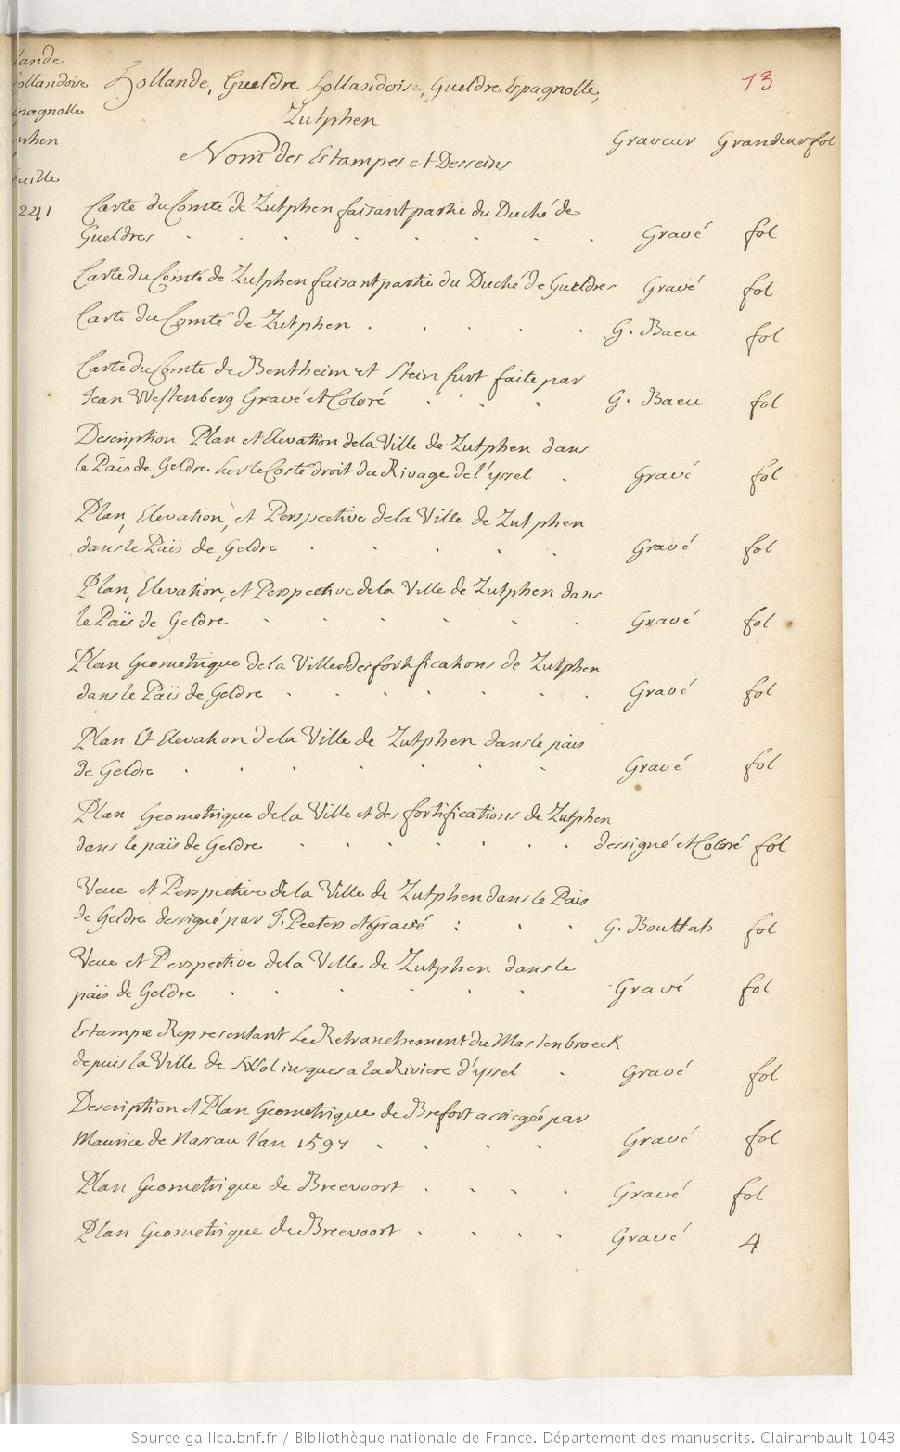 Hollande, Gueldre Hollandoise, Gueldre Espagnolle, 13
Zutphen
Nom des Estampes et Desseins Graveur Grandeur fol
241
Carte du Comté de Zutphen faisant partie du Duché de
Gueldres . . . . . . . Gravé fol
Carte du Comté de Zutphen faisant partie du Duché de Gueldres Gravé fol
Carte du Comté de Zutphen . . . . G. Baeu fol
Carte du Comte de Bentheim et Steinfurt faite par
Jean Westenberg Gravé et Coloré . . . G. Baeu fol
Description Plan et Elevation de la Ville de Zutphen dans
le Païs de Geldre sur le Costé droit du Rivage de l'yssel . Gravé fol
Plan, Elevation, et Perspective de la Ville de Zutphen
dans le Païs de Geldre . . . . . Gravé fol
Plan, Elevation, et Perspective de la Ville de Zutphen dans
le Païs de Geldre . . . . . . Gravé fol
Plan Geometrique de la Ville et des fortifications de Zutphen
dans le Païs de Geldre . . . . . . Gravé fol
Plan Et Elevation de la Ville de Zutphen dans le païs
de Geldre . . . . . . . Gravé fol
Plan Geometrique de la Ville et des fortifications de Zutphen
dans le païs de Geldre . . . . . . dessigné et Coloré fol
Veue et Perspective de la Ville de Zutphen dans le Païs
de Geldre dessigné par J. Peeters et Gravé : . . G. Bouttats fol
Veue et Perspective de la Ville de Zutphen dans le
païs de Geldre . . . . . . Gravé fol
Estampe Representant Le Retranchement du Mastenbroeck
depuis la Ville de Swol iusques a la Riviere d'yssel . Gravé fol
Description et Plan Geometrique de Brefort assiegée par
Maurice de Nassau l'an 1597 . . . . Gravé fol
Plan Geometrique de Breevoort . . . . Gravé fol
Plan Geometrique de Breevoort . . . . Gravé 4
Source gallica.bnf.fr / Bibliothèque nationale de France. Département des manuscrits. Clairambault 1043